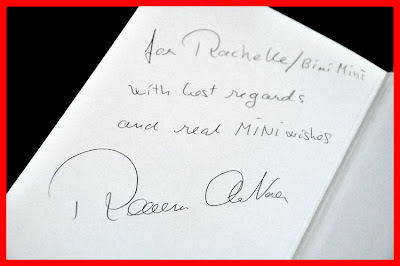 for Rachelle/Bini Mini
with best regards
and real MINI wishes